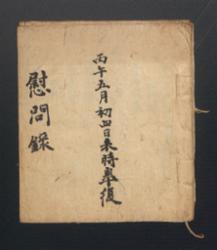 丙午五月初四日未時皐復
慰問錄